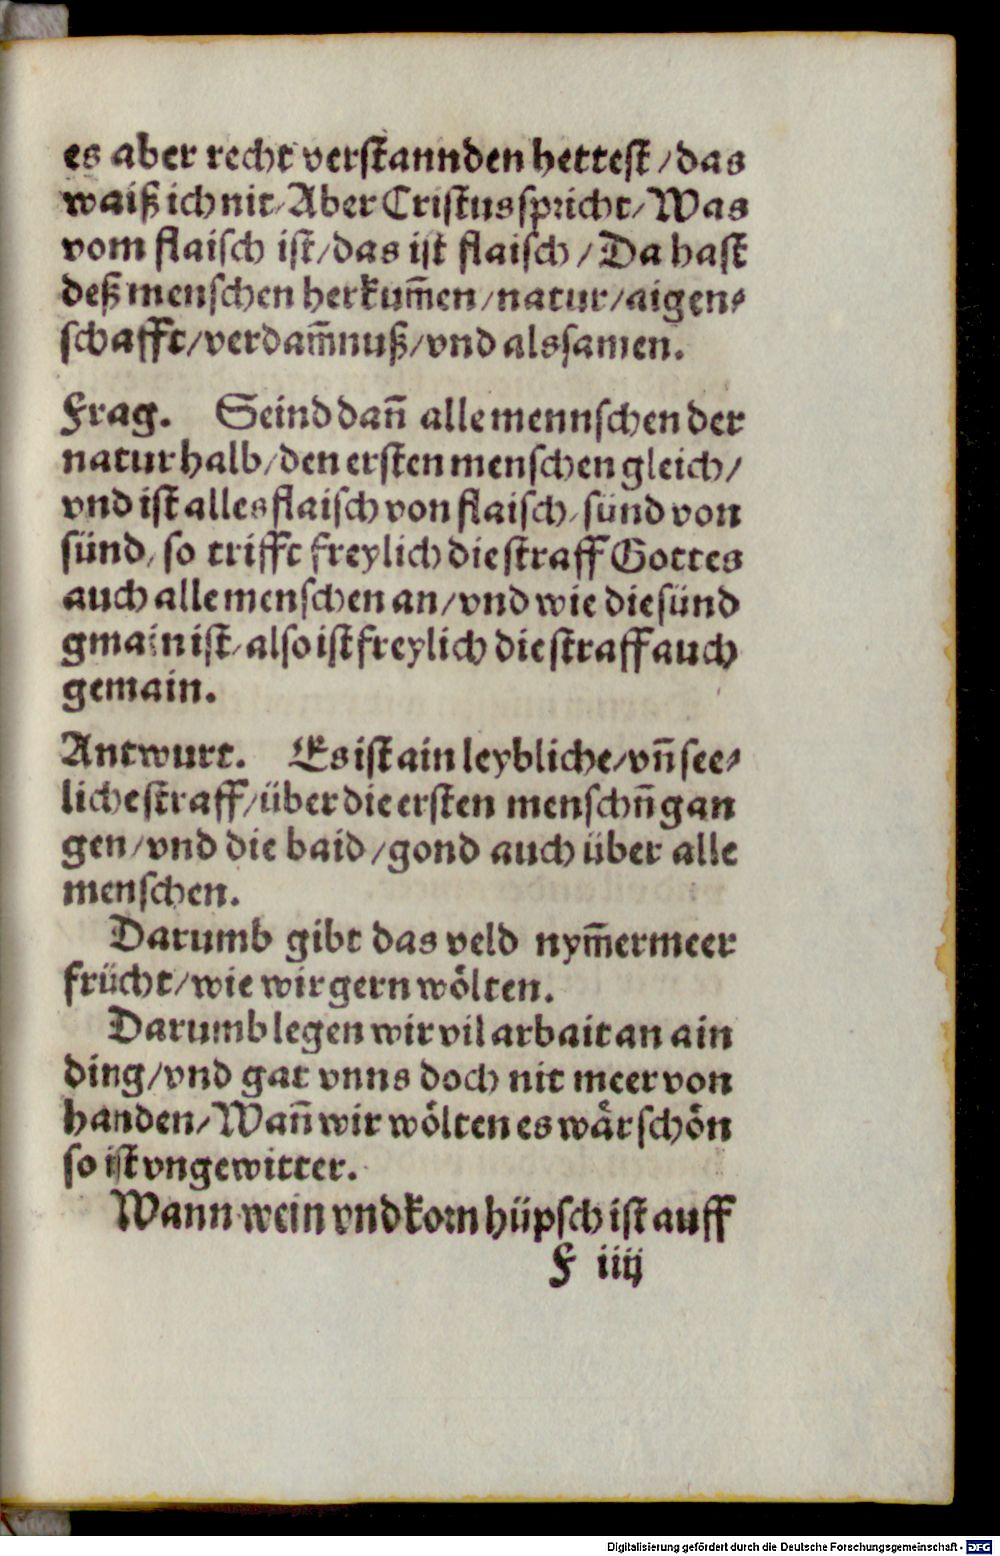 es aber recht verstannden hettest / das
waiß ich nit / Aber Cristus spricht / Was
vom flaisch ist / das ist flaisch / Da hast
deß menschen herkum̃en / natur / aigen⸗
schafft / verdam̃nuß / vnd als samen.
Frag. Seind dañ alle mennschen der
natur halb / den ersten menschen gleich /
vnd ist alles flaisch von flaisch / sünd von
sünd / so trifft freylich die straff Gottes
auch alle menschen an / vnd wie die sünd
gmain ist / also ist freylich die straff auch
gemain.
Antwurt. Es ist ain leybliche / vñ see⸗
liche straff / über die ersten menschñ gan
gen / vnd die baid / gond auch über alle
menschen.
Darumb gibt das veld nym̃ermeer
frücht / wie wir gern wôlten.
Darumb legen wir vil arbait an ain
ding / vnd gat vnns doch nit meer von
handen / Wañ wir wôlten es wår schôn
so ist vngewitter.
Wann wein vnd korn hüpsch ist auff
F iiij
Digitalisierung gefördert durch die Deutsche Forschungsgemeinschaft - DFG